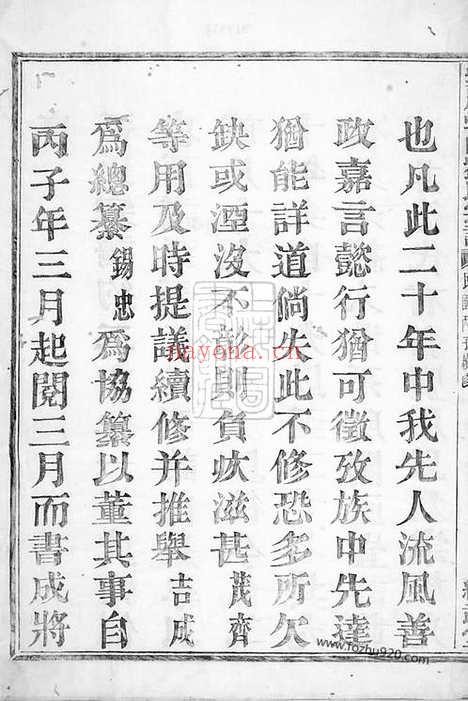 也凡此二十年中我先人流風善
政嘉言懿行猶可徵攷族中先達
猶能詳道倘失此不修恐多所欠
缺或湮沒不彰則負疚滋甚茂齊
等用及時提議續修并推舉吉成
為總纂錫忠為協纂以董其事自
丙子年三月起閱三月而書成將
nayona.cn
www.fozhu920.com